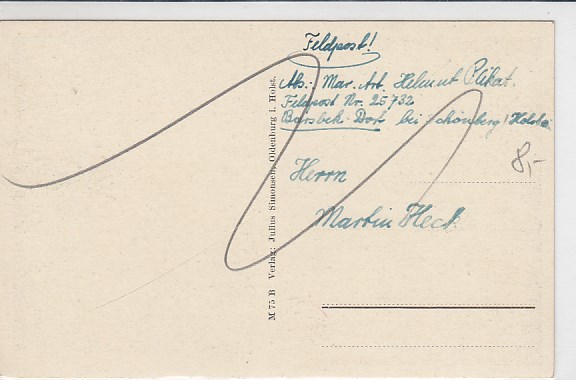 Feldpost!
Abs.: Mar. Art. Helmut Plikat.
Feldpost Nr. 25732
Barsbek-Dorf bei Schönberg/Holstein
8,-
Herrn
Martin Fleck
M 75 B Verlag: Julius Simonsen, Oldenburg i. Holst.